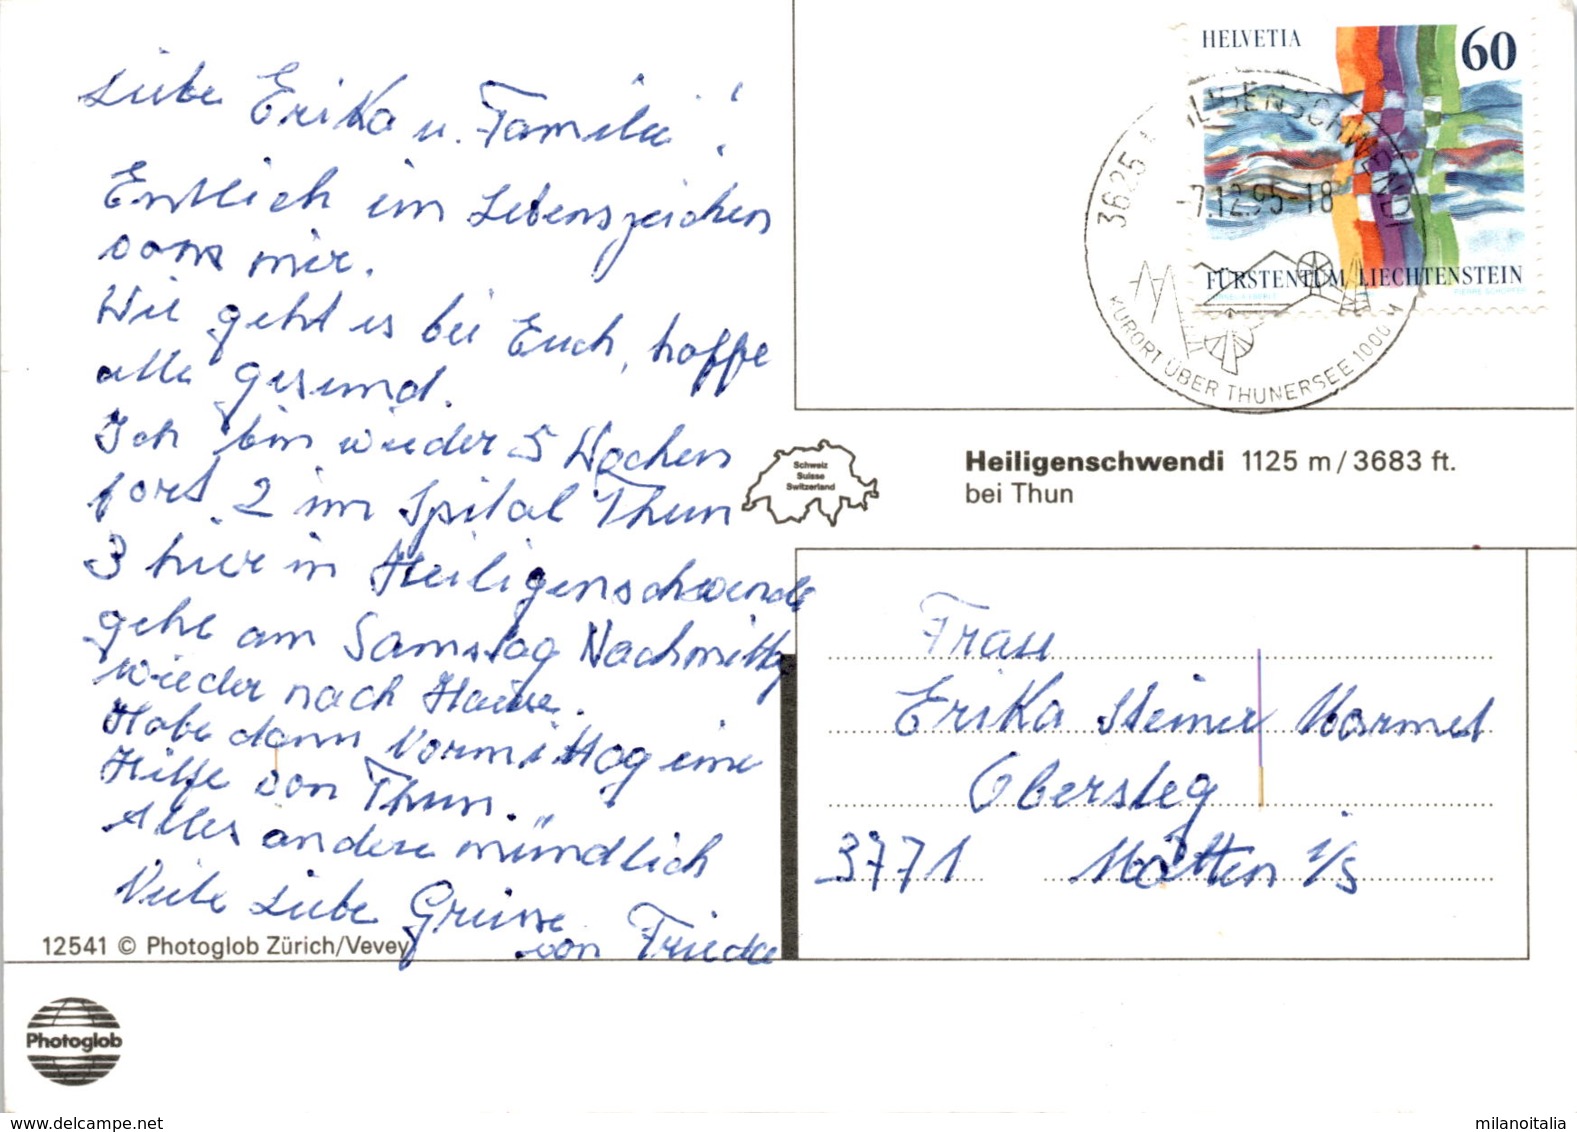 Liebe Erika u. Familie!
Entlich ein Lebenszeichen
von mir.
Wie geht es bei Euch, hoffe
alle gesund.
Ich bin wieder 5 Wochen
fort. 2 im Spital Thun
3 hier in Heiligenschwende
gehe am Samstag Nachmittg
wieder nach Hause.
Habe dann Vormittag eine
Hilfe von Thun.
Alles andere mündlich
Viele Liebe Grüsse
von Frieda
12541 © Photoglob Zürich/Vevey
Photoglob
HELVETIA 60
FÜRSTENTUM LIECHTENSTEIN
3625 HEILIGENSCHWENDI
-7.12.95-18
KURORT ÜBER THUNERSEE 1000 M
Schweiz
Suisse
Switzerland
Heiligenschwendi 1125 m / 3683 ft.
bei Thun
Frau
Erika Steiner Marmet
Obersteg
3771 Matten i/S
milanoitalia
delcampe.net